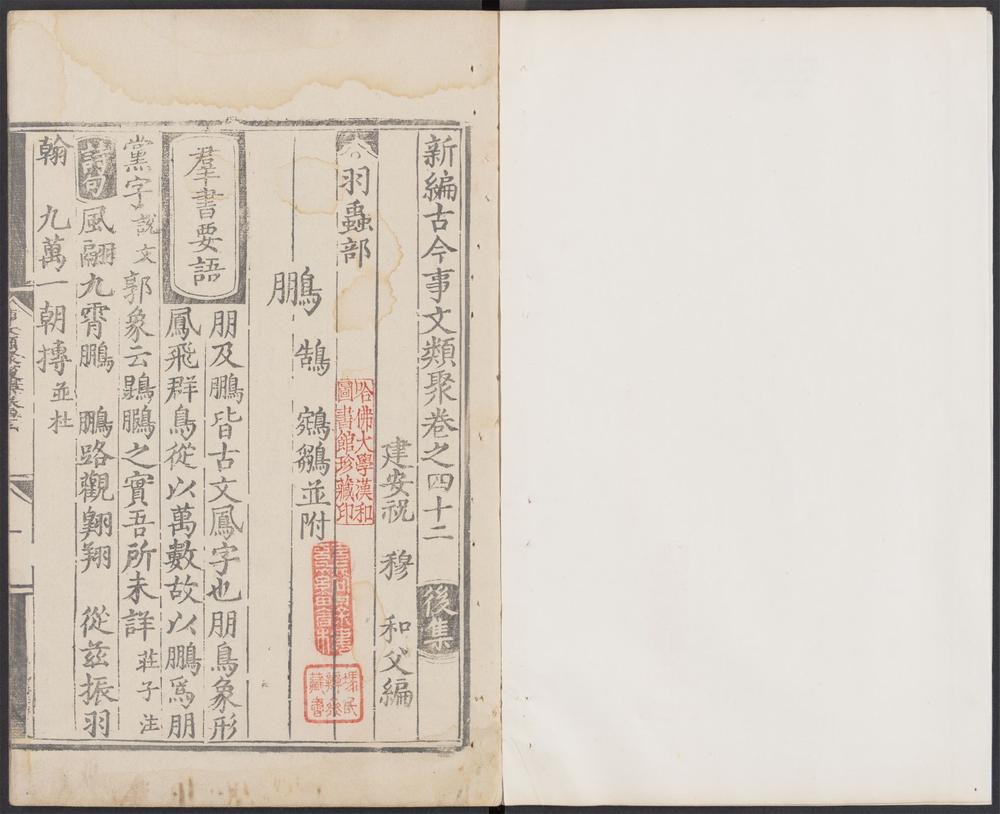 新編古今事文類聚卷之四十二 後集
建安祝 穆 和父編
羽蟲部
哈佛大學漢和
圖書館珍藏印
鵬 鵠 鵷鶵並附
羣書要語
朋及鵬皆古文鳳字也朋鳥象形
鳳飛群鳥從以萬數故以鵬爲朋
黨字 說文 郭象云鵾鵬之實吾所未詳 莊子注
詩句 風翮九霄鵬 鵬路觀翺翔 從茲振羽
翰 九萬一朝摶 並杜